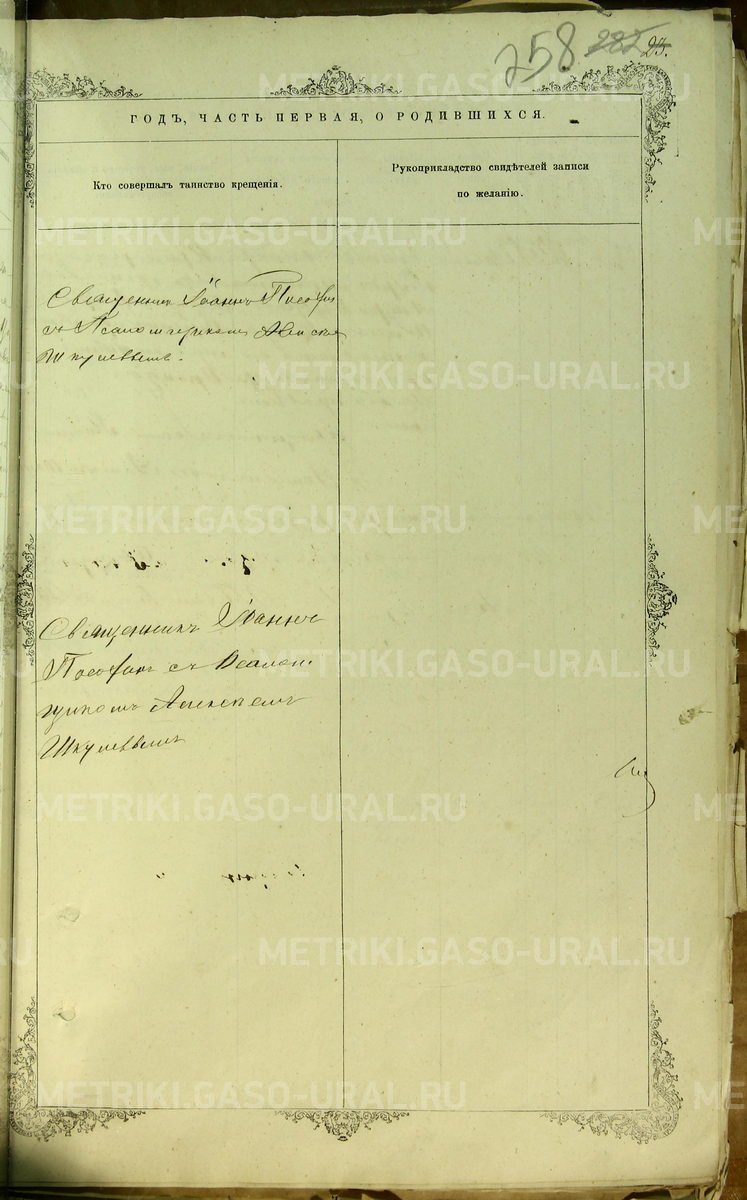 258 282 23.
ГОДЪ, ЧАСТЬ ПЕРВАЯ, О РОДИВШИХСЯ.
Кто совершалъ таинство крещенія.
Рукоприкладство свидѣтелей записи
по желанію.
Священникъ Іоаннъ
съ Псаломщикомъ
Шкулевымъ.
Священникъ Іоаннъ
съ Псалом-
щикомъ Алексѣемъ
Шкулевымъ
METRIKI.GASO-URAL.RU